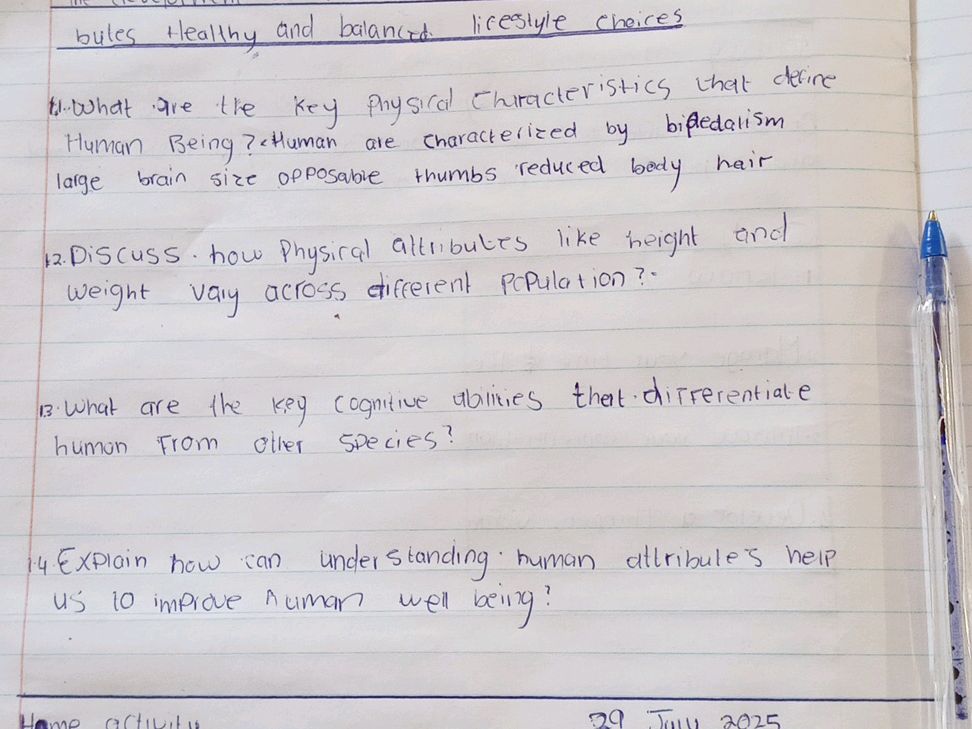 butes Healthy and balanced lifestyle choices
11. What are the key physical characteristics that define
Human Being? Human are characterized by bipedalism
large brain size opposable thumbs reduced body hair
12. Discuss how Physical attributes like height and
weight vary across different population?
13. What are the key cognitive abilities that differentiate
human From other species?
14. Explain how can understanding human attribute's help
us to improve human well being?
Home activity 29 July 2025